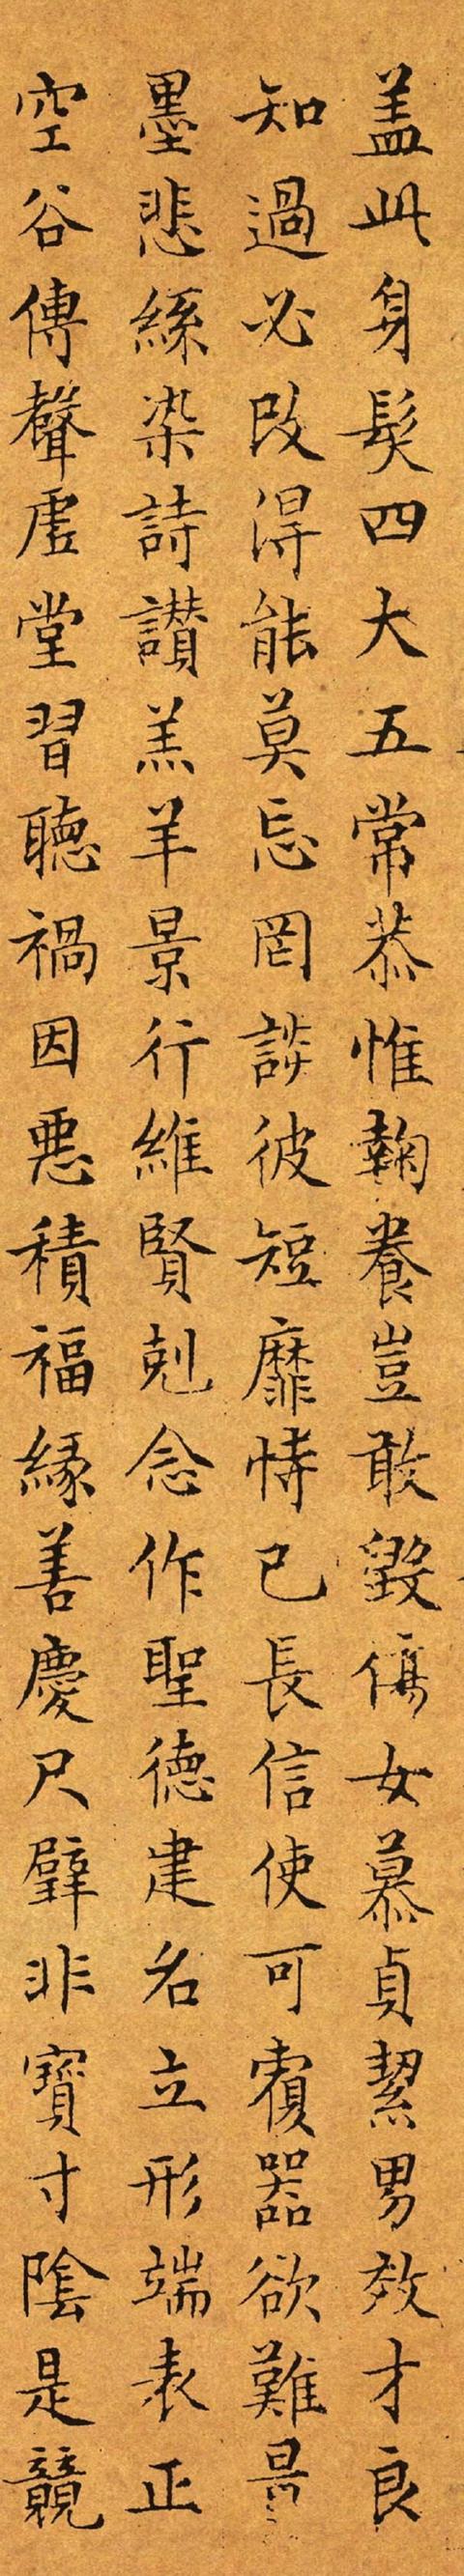 盖此身髮四大五常恭惟鞠養豈敢毀傷女慕貞絜男效才良
知過必改得能莫忘罔談彼短靡恃己長信使可覆器欲難量
墨悲絲染詩讚羔羊景行維賢剋念作聖德建名立形端表正
空谷傳聲虛堂習聽禍因惡積福緣善慶尺璧非寶寸陰是競